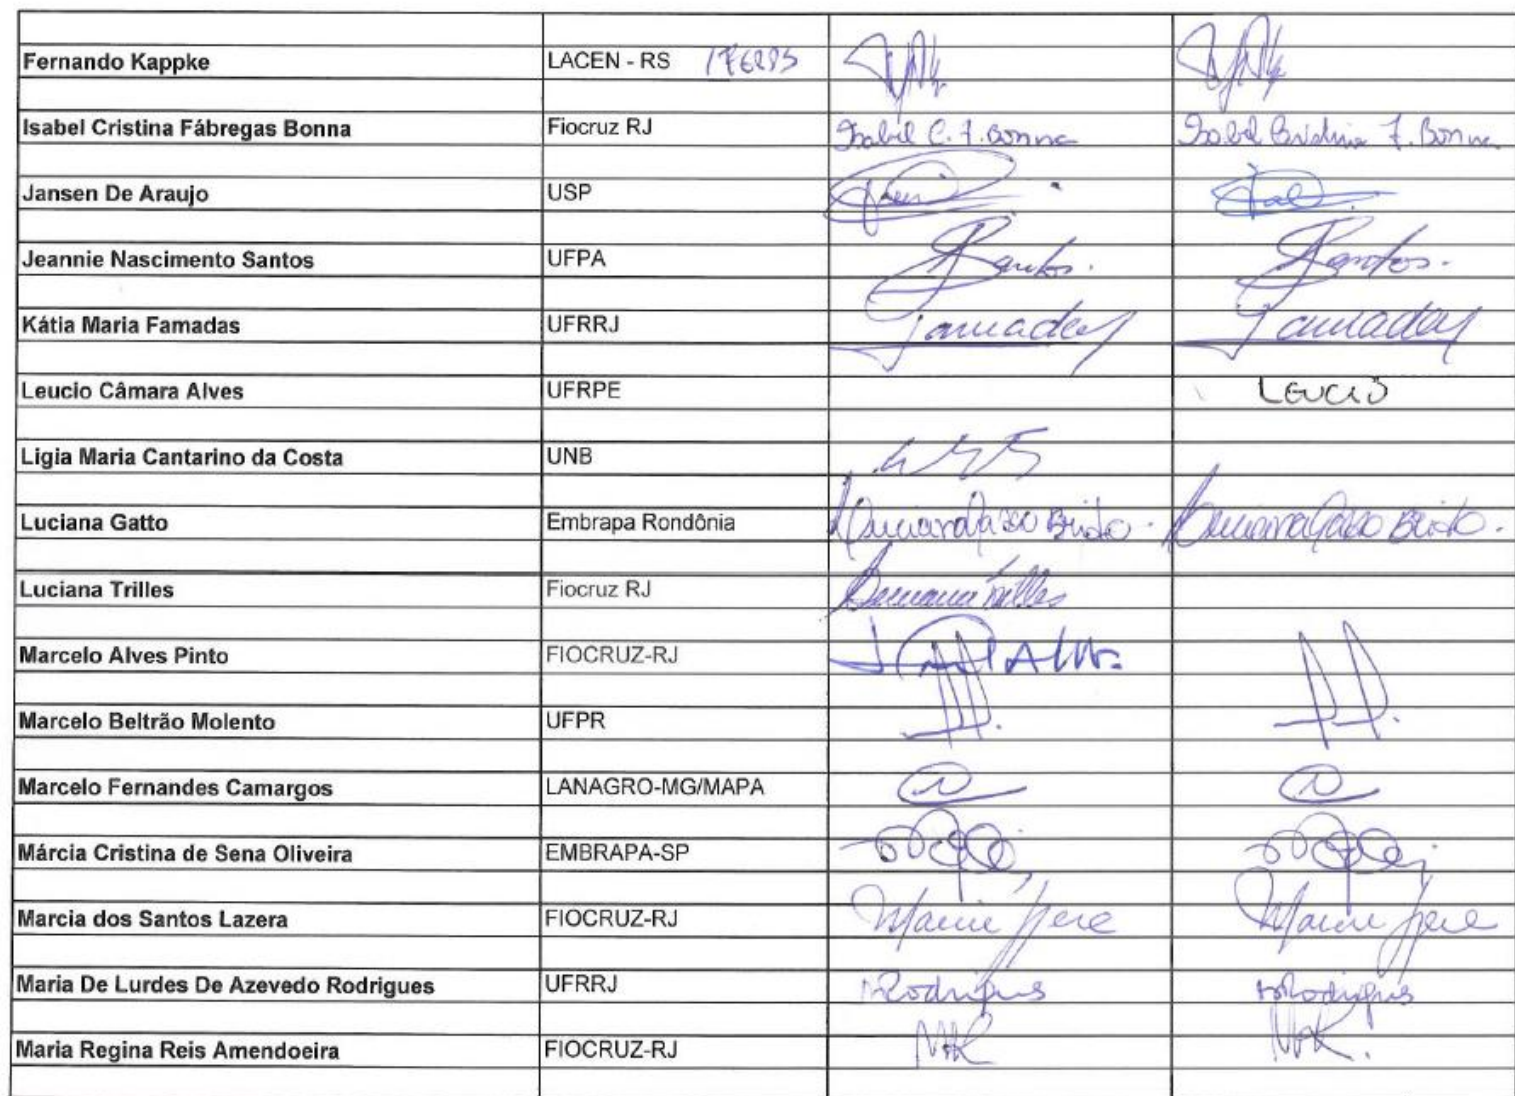 Fernando Kappke LACEN - RS
Isabel Cristina Fábregas Bonna Fiocruz RJ Isabel C. F. Bonna Isabel Cristina F. Bonna
Jansen De Araujo USP
Jeannie Nascimento Santos UFPA Santos. Santos.
Kátia Maria Famadas UFRRJ Famadas Famadas
Leucio Câmara Alves UFRPE LEUCIO
Ligia Maria Cantarino da Costa UNB
Luciana Gatto Embrapa Rondônia Luciana Gatto Brito. Luciana Gatto Brito.
Luciana Trilles Fiocruz RJ Luciana Trilles
Marcelo Alves Pinto FIOCRUZ-RJ
Marcelo Beltrão Molento UFPR
Marcelo Fernandes Camargos LANAGRO-MG/MAPA
Márcia Cristina de Sena Oliveira EMBRAPA-SP
Marcia dos Santos Lazera FIOCRUZ-RJ
Maria De Lurdes De Azevedo Rodrigues UFRRJ Rodrigues Rodrigues
Maria Regina Reis Amendoeira FIOCRUZ-RJ